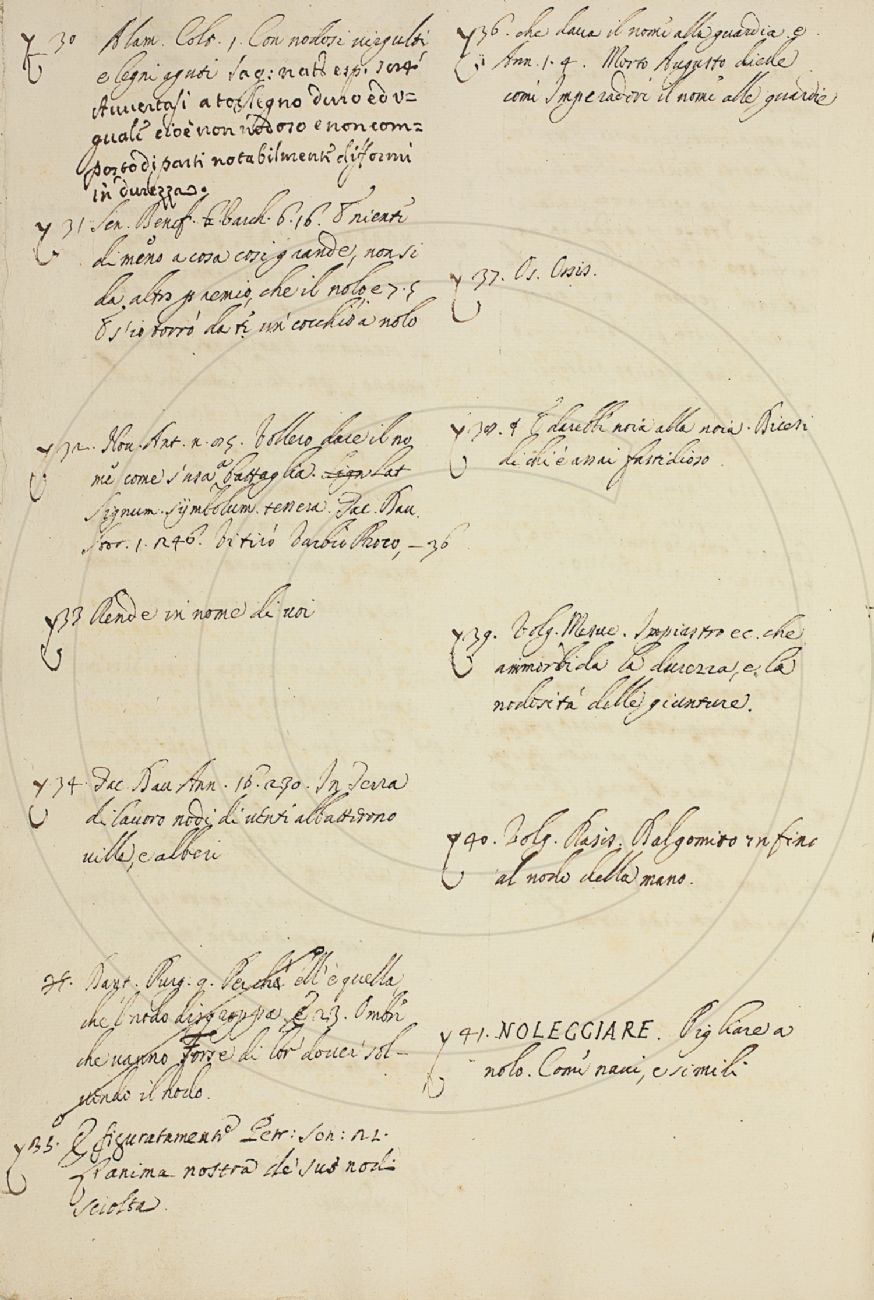 30 Alam. Colt. 1. Con nodosi virgulti
e legni aguti Sag: nat: esp.
Avvertasi a tor legno duro ed u=
guale cioè non nodoso e non com=
posto di parti notabilmente difformi
in durezza.
31 Sen. Benef. Varch. 6. 16. E niente
di meno a cosa così grande, non si
da altro premio, che il nolo e 7. 5
E s'io torrò da te un cocchio a nolo
32. Nov. Ant. Vollero dare il no
me come s'usa a battaglia. Lat
Signum. symbolum. tessera. Dav.
Stor. 1. 246. — 36
33 Rende in nome di voi
34. Tac. Dav Ann. 16. 230. In Terra
di lavoro nodi di venti abbatterono
ville, e alberi
35. Dant. Purg. 9. Perché ell'è quella
che 'l nodo disgroppa. E 23. Ombre
che vanno Forse di lor dover sol-
vendo il nodo.
35. E figuratamente Petr: Son:
L'anima nostra de' suoi nodi
sciolta.
36. che dava il nome alla guardia. e
Ann. 1. 4. Morto Augusto diede
come Imperadore il nome alle guardie
37. Os. Ossis.
38. E darebbe noia alla noia. Dicesi
di chi è assai fastidioso
39. Volg. Mesue. Impiastro ec. che
ammorbida la durezza, e la
nodosità delle giunture.
40. Volg. Rasis. Dal gomito infino
al nodo della mano.
41. NOLEGGIARE. Pigliare a
nolo. Come navi, e simili.